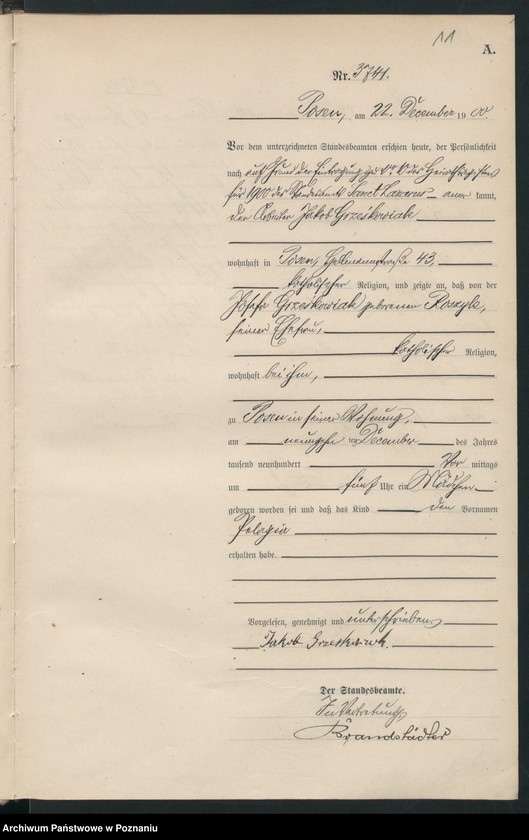 11
A.
Nr. 3741.
Posen, am 22. December 1900
Vor dem unterzeichneten Standesbeamten erschien heute, der Persönlichkeit
nach auf Grund der Eintragung zu des Heirathsregisters
für 1900 des Standesamts Sanct Lazarus aner kannt,
der Arbeiter Jakob Grześkowiak
wohnhaft in Posen, 43,
katholischer Religion, und zeigte an, daß von der
Josefa Grześkowiak geborenen Roszyk,
seiner Ehefrau,
katholischer Religion,
wohnhaft bei ihm,
zu Posen in seiner Wohnung,
am neunzehn ten December des Jahres
tausend neunhundert Vor mittags
um fünf Uhr ein Mädchen
geboren worden sei und daß das Kind den Vornamen
Pelagia
erhalten habe.
Vorgelesen, genehmigt und unterschrieben
Jakob Grześkowiak.
Der Standesbeamte.
In Vertretung
Brandstädter
Archiwum Państwowe w Poznaniu